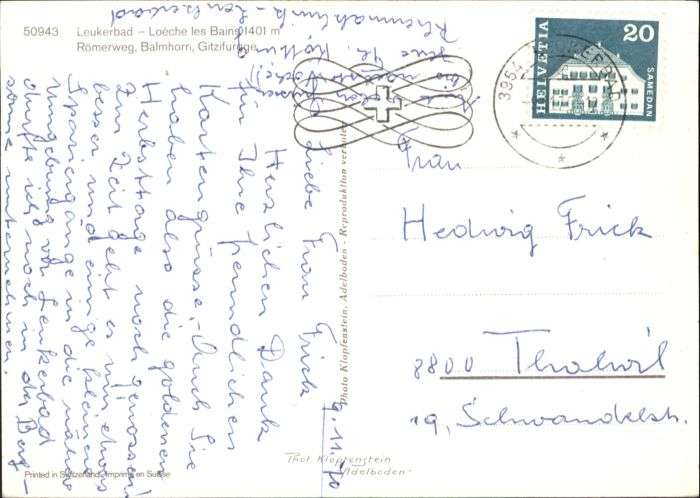 50943 Leukerbad – Loèche les Bains 1401 m
Römerweg, Balmhorn, Gitzifurgge
HELVETIA
20
SAMEDAN
3954
Photo Klopfenstein, Adelboden - Reproduktion verboten
9. 11. 70
Liebe Frau Frick
Herzlichen Dank
für Ihre freundlichen
Kartengrüsse,- Auch Sie
haben also die goldenen
Herbsttage noch genossen!
Zur Zeit geht es mir etwas
besser und einige kleinere
Spaziergänge in die nähere
Umgebung von Leukerbad
durfte ich noch in den Berg-
sonne unternehmen.
Ihre
Rheumaklinik - Leukerbad
Frau
Hedwig Frick
8800 Thalwil
19, Schwandelstr.
Phot Klopfenstein
Adelboden
Printed in Switzerland - Imprimé en Suisse